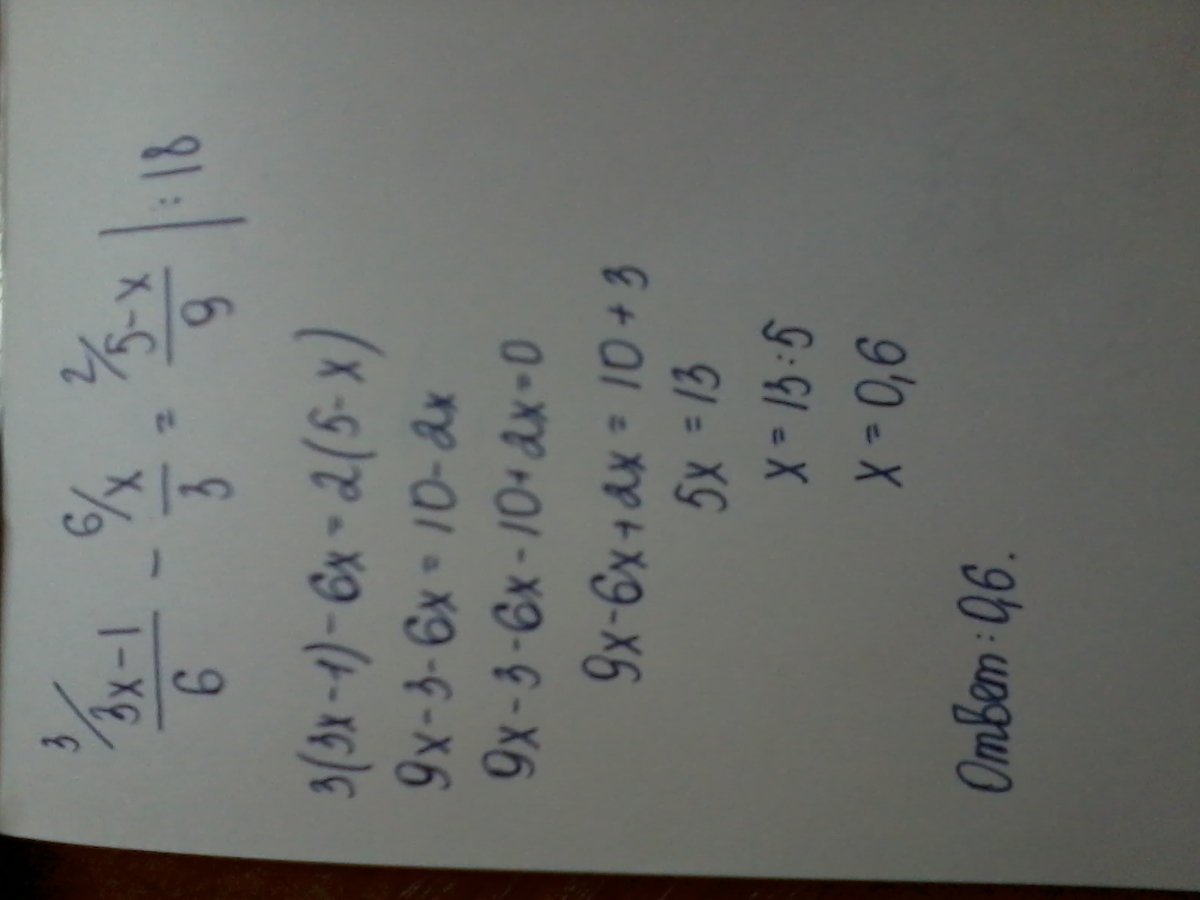 3/ 3x-1/6 - 6/ x/3 = 2/ 5-x/9 | : 18
3(3x-1)-6x=2(5-x)
9x-3-6x=10-2x
9x-3-6x-10+2x=0
9x-6x+2x=10+3
5x=13
x=13:5
x=0,6
Ответ: 0,6.